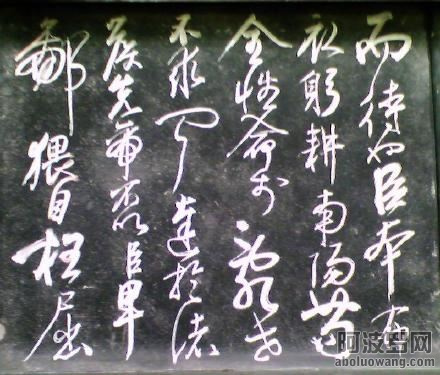 而待也臣本布
衣躬耕南陽苟
全性命於亂世
不求聞達於諸
侯先帝不以臣卑
鄙猥自枉屈
阿波羅网
aboluowang.com